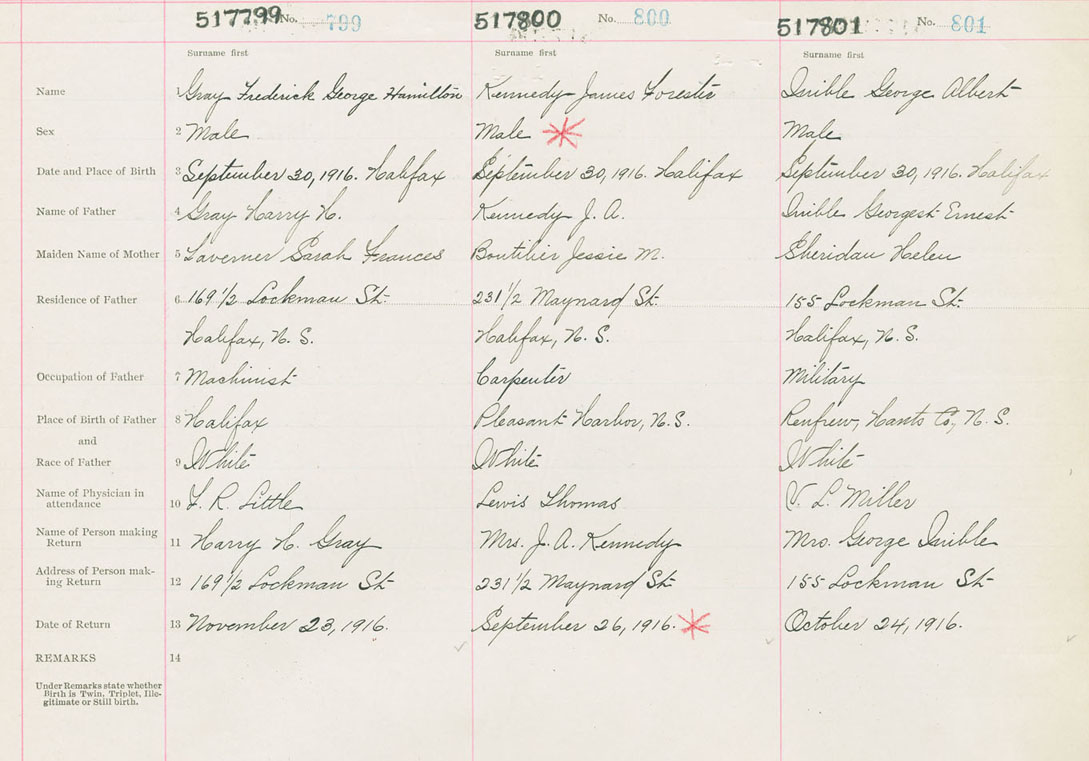 517799 No. 799 517800 No. 800 517801 No. 801
Surname first Surname first Surname first
Name 1 Gray Frederick George Hamilton Kennedy James Forester Quible George Albert
Sex 2 Male Male Male
Date and Place of Birth 3 September 30, 1916. Halifax September 30, 1916. Halifax September 30, 1916. Halifax
Name of Father 4 Gray Harry H. Kennedy J. A. Quible Ernest
Maiden Name of Mother 5 Laverner Sarah Frances Boutilier Jessie M. Sheridan Helen
Residence of Father 6 169 1/2 Lockman St. 231 1/2 Maynard St. 155 Lockman St.
Halifax, N. S. Halifax, N. S. Halifax, N. S.
Occupation of Father 7 Machinist Carpenter Military
Place of Birth of Father 8 Halifax Pleasant Harbor, N.S. Renfrew, Hants Co, N. S.
and
Race of Father 9 White White White
Name of Physician in
attendance 10 F. R. Little Lewis Thomas V. L. Miller
Name of Person making
Return 11 Harry H. Gray Mrs. J. A. Kennedy Mrs. George Quible
Address of Person mak-
ing Return 12 169 1/2 Lockman St 231 1/2 Maynard St 155 Lockman St
Date of Return 13 November 23, 1916. September 26, 1916. October 24, 1916.
REMARKS 14
Under Remarks state whether
Birth is Twin, Triplet, Ille-
gitimate or Still birth.